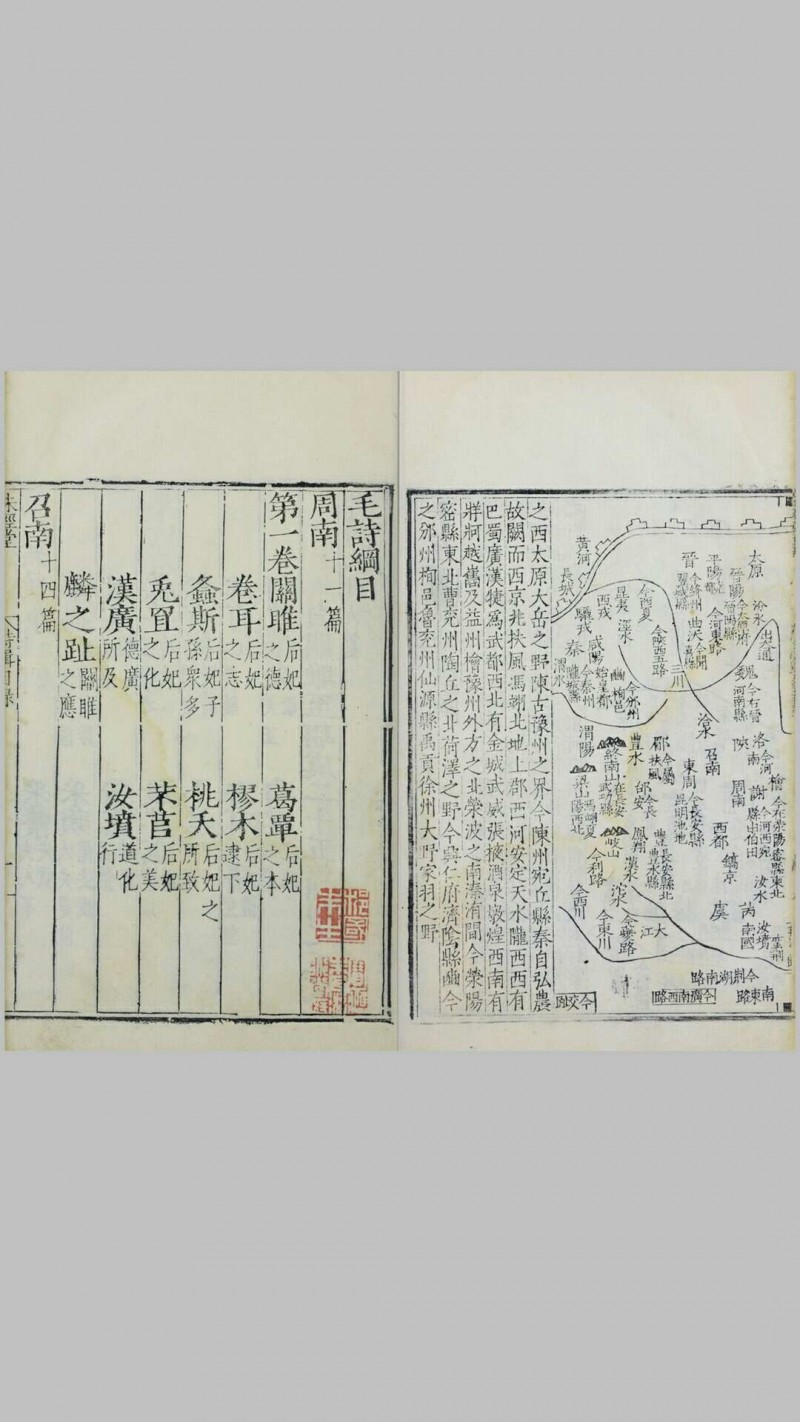 毛詩綱目
周南十一篇
第一卷關雎后妃之德 葛覃后妃之本
卷耳后妃之志 樛木后妃逮下
螽斯后妃子孫眾多 桃夭后妃之所致
兎罝后妃之化 芣苢后妃之美
漢廣德廣所及 汝墳道化行
麟之趾關雎之應
召南十四篇
太原
汾水
晉陽
平陽
晉
黃河
長城
昆夷
西戎
驪戎
秦
咸陽
渭水
今西夏
今陝西五路
三川
魏
今河東路
曲沃
渭陽
豐水
終南山
梁山
岐山
鳳翔
漢水
東周
洛
陝
召南
周南
謝
檜
西都
鎬京
虞
芮
汝水
汝墳
南國
今利路
今西川
今東川
今夔路
大江
今荆湖南路
今廣南西路
南東路
今交趾
之西太原大岳之野陳古豫州之界今陳州宛丘縣秦自弘農
故關而西京兆扶風馮翊北地上郡西河安定天水隴西西有
巴蜀廣漢犍爲武都西北有金城武威張掖酒泉燉煌西南有
牂牁越巂及益州檜豫州外方之北滎波之南溱洧間今滎陽
密縣東北曹兖州陶丘之北荷澤之野今興仁府濟陰縣豳今
之邠州栒邑魯兖州仙源縣禹貢徐州大野蒙羽之野